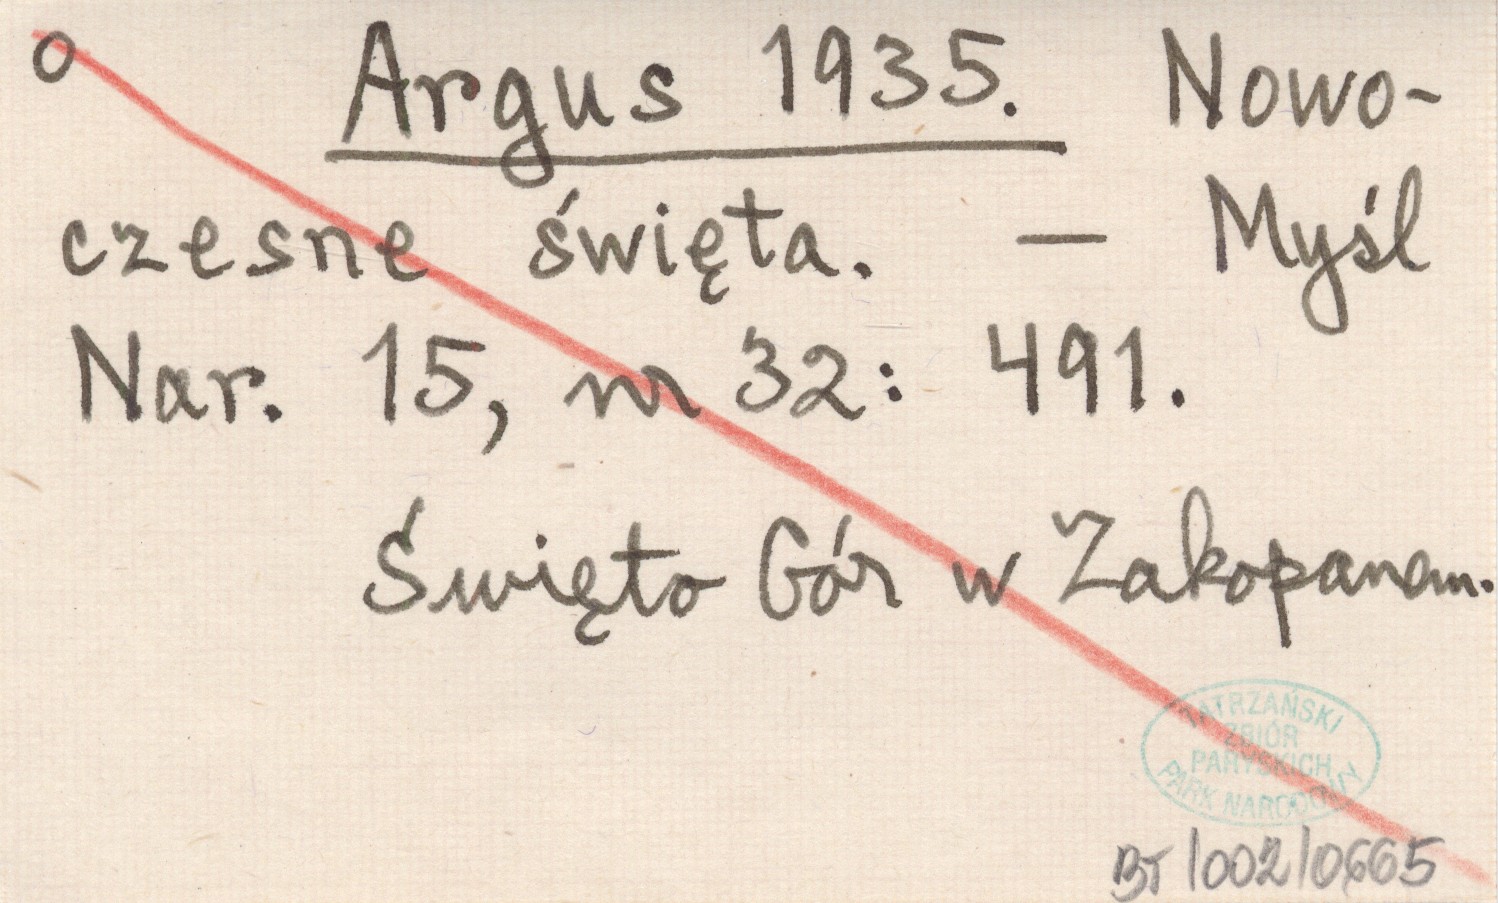 o Argus 1935. Nowo-
czesne święta. — Myśl
Nar. 15, nr 32: 491.
Święto Gór w Zakopanem.
TATRZAŃSKI
ZBIÓR
PARYSKICH
PARK NARODOWY
BT/002/0665